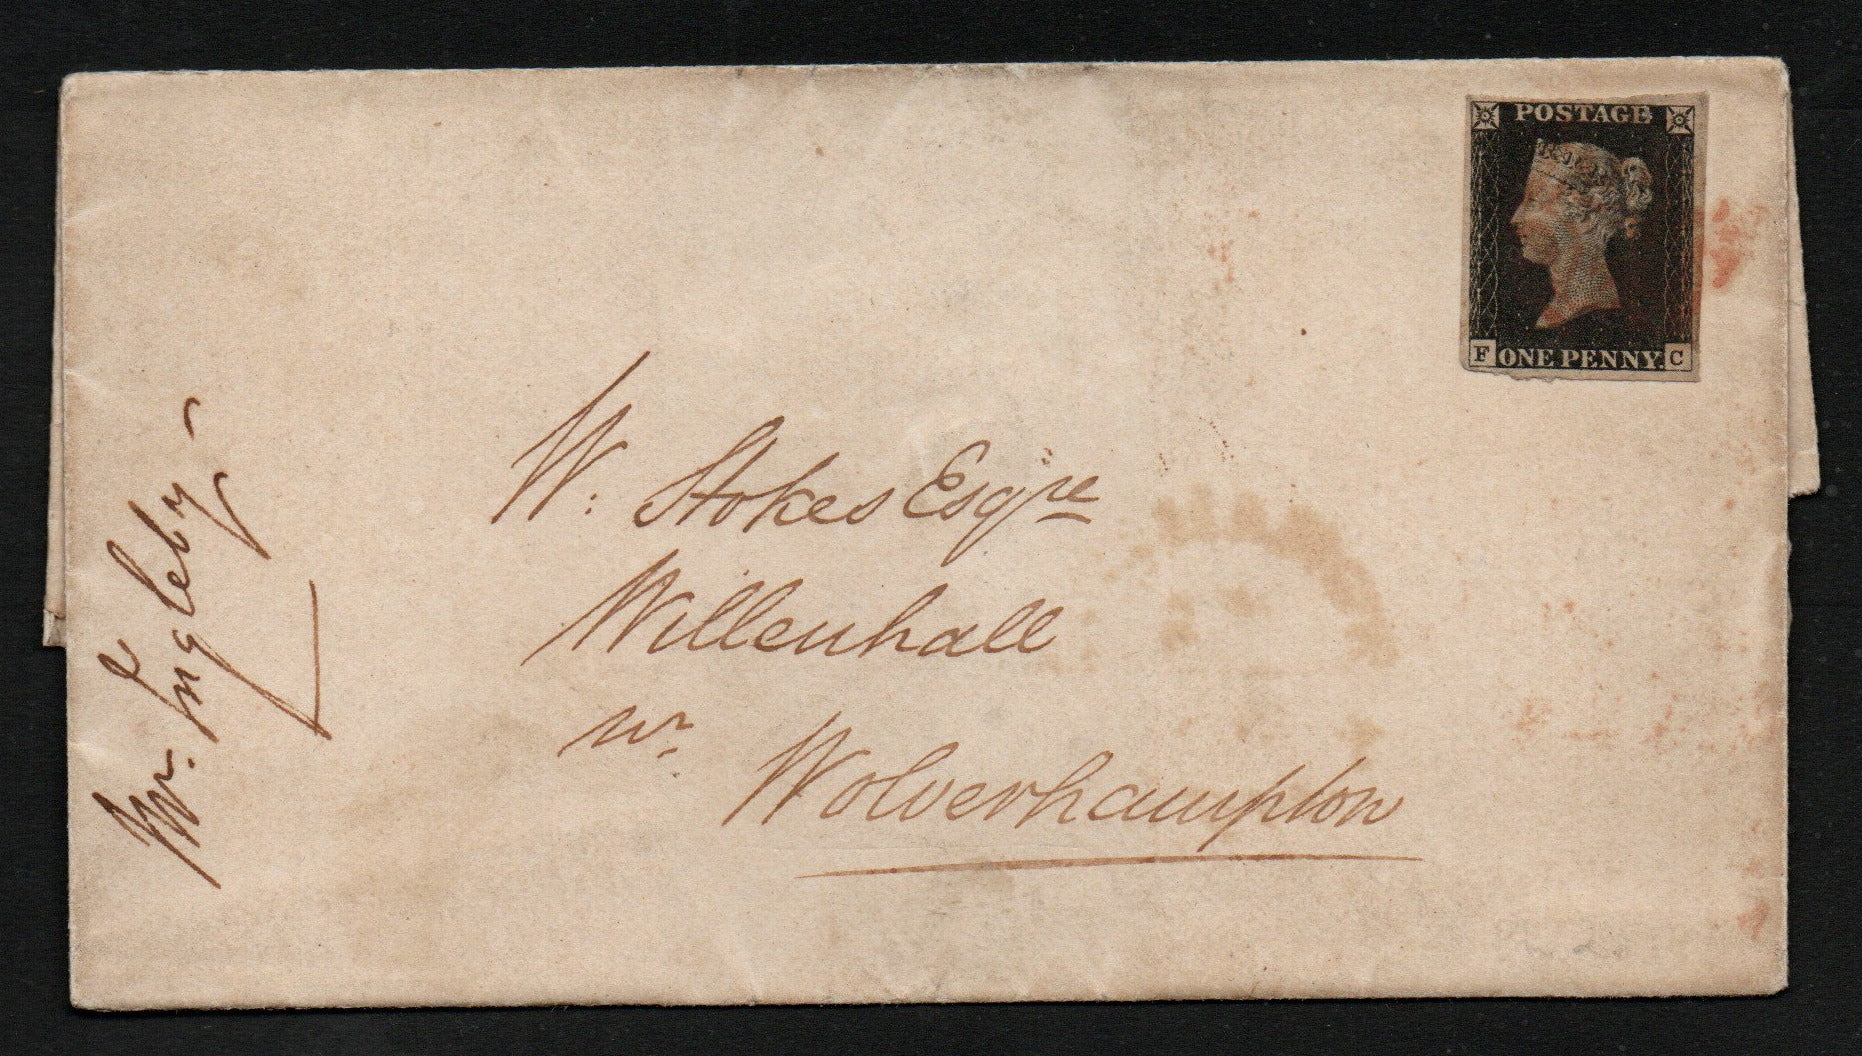 POSTAGE
F ONE PENNY. C
W. Stokes Esqre
Willenhall
nr
Wolverhampton
Mr. Ingleby